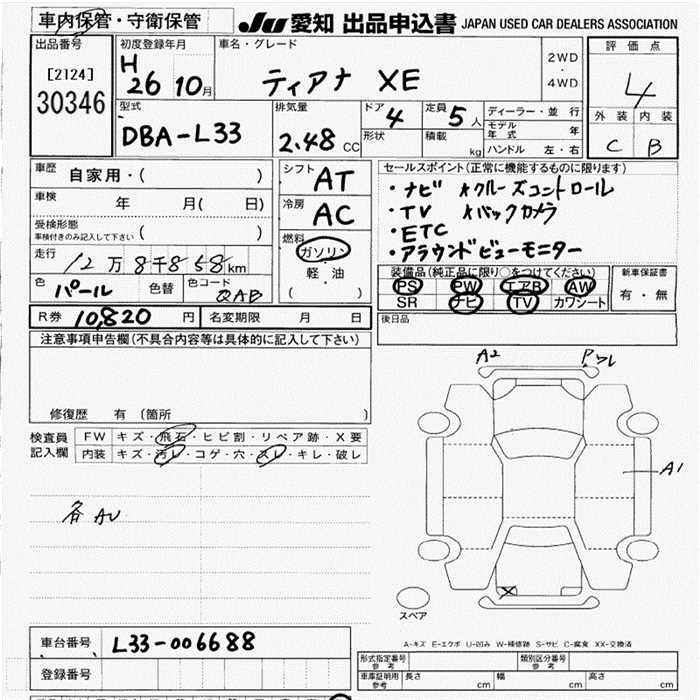 車内保管・守衛保管
JU 愛知 出品申込書 JAPAN USED CAR DEALERS ASSOCIATION
出品番号
[2124]
30346
初度登録年月
H 26 10月
車名・グレード
ティアナ XE
2WD
・
4WD
評価点
4
外装 内装
C B
型式
DBA-L33
排気量
2.48 CC
ドア 4
形状
定員 5人
積載 kg
ディーラー・並行
モデル年式 年
ハンドル 左・右
車歴 自家用・( )
車検 年 月( 日)
受検形態
車検付きのみ記入して下さい ( )
走行 12万8千858km
色 パール 色替 色コード QAB
シフト AT
冷房 AC
燃料
ガソリン
軽・油
( )
セールスポイント(正常に機能するものに限ります)
・ナビ ★クルーズコントロール
・TV ★バックカメラ
・ETC
・アラウンドビューモニター
装備品(純正品に限り○をつけてください)
PS PW エアB AW
SR ナビ TV カワシート
新車保証書
有・無
R券 10,820 円 名変期限 月 日
後日品
注意事項申告欄(不具合内容等は具体的に記入して下さい)
修復歴 有 (箇所 )
検査員記入欄
FW キズ・飛石・ヒビ割・リペア跡・X要
内装 キズ・汚レ・コゲ・穴・スレ・キレ・破レ
各AU
A2
A1
X
スペア
A-キズ E-エクボ U-凹み W-補修跡 S-サビ C-腐食 XX-交換済
車台番号 L33-006688
登録番号
形式指定番号 参考 類別区分番号 参考
車庫証明用 参考 長さ cm 幅 cm 高さ cm